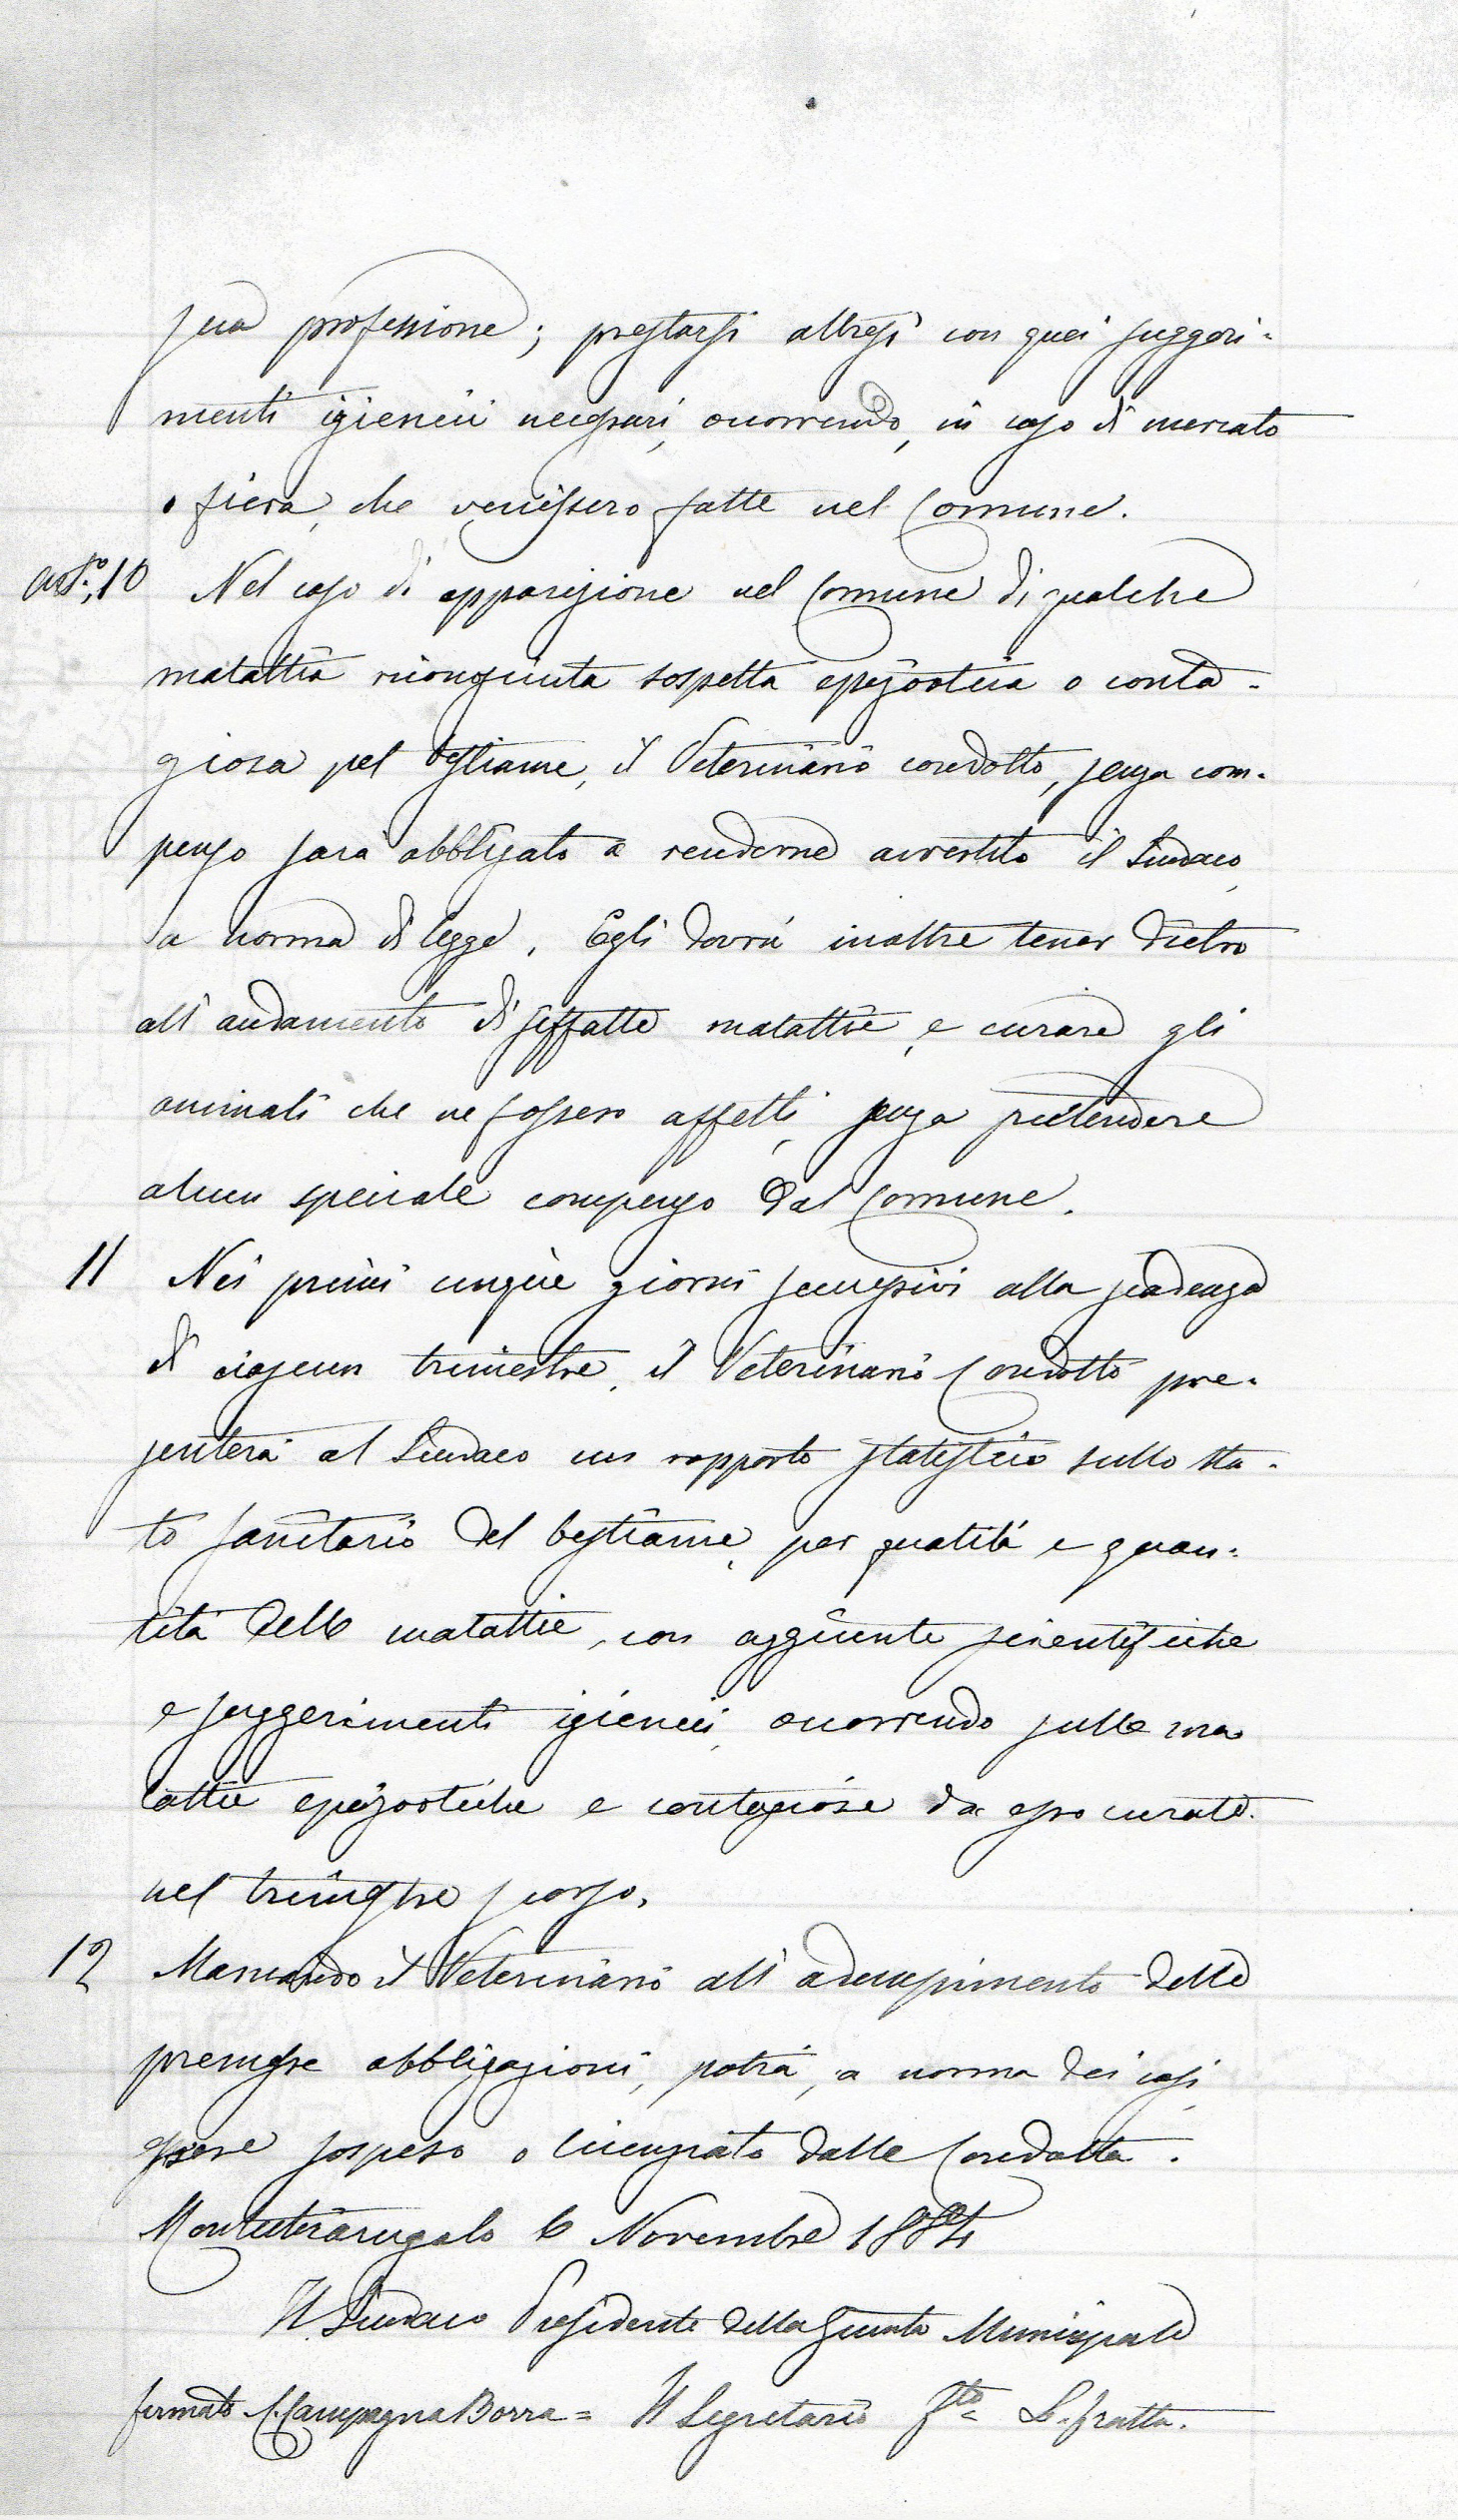 sua professione; prestarsi altresì con quei suggeri-
menti igienici necessari, occorrendo, in caso di mercato
o fiera, che venissero fatte nel Comune.
Art.º 10 Nel caso di apparizione nel Comune di qualche
malattia riconosciuta sospetta epizootica o conta-
giosa pel bestiame, il Veterinario condotto, senza com-
penso sarà obbligato a renderne avvertito il Sindaco,
a norma di legge. Egli dovrà inoltre tener dietro
all'andamento di siffatte malattie, e curare gli
animali che ne fossero affetti, senza pretendere
alcun speciale compenso dal Comune.
11 Nei primi cinque giorni successivi alla scadenza
di ciascun trimestre, il Veterinario Condotto pre-
senterà al Sindaco un rapporto statistico sullo sta-
to sanitario del bestiame, per qualità e quan-
tità delle malattie, con aggiunte scientifiche
e suggerimenti igienici, occorrendo sulle ma
lattie epizootiche e contagiose da esso curate
nel trimestre scorso.
12 Mancando il Veterinario all'adempimento delle
premesse obbligazioni, potrà, a norma dei casi,
essere sospeso o licenziato dalla Condotta.
6 Novembre 1884
Il Sindaco Presidente della Giunta Municipale
firmato Campagna Borra = Il Segretario Fto = L. Fratta.